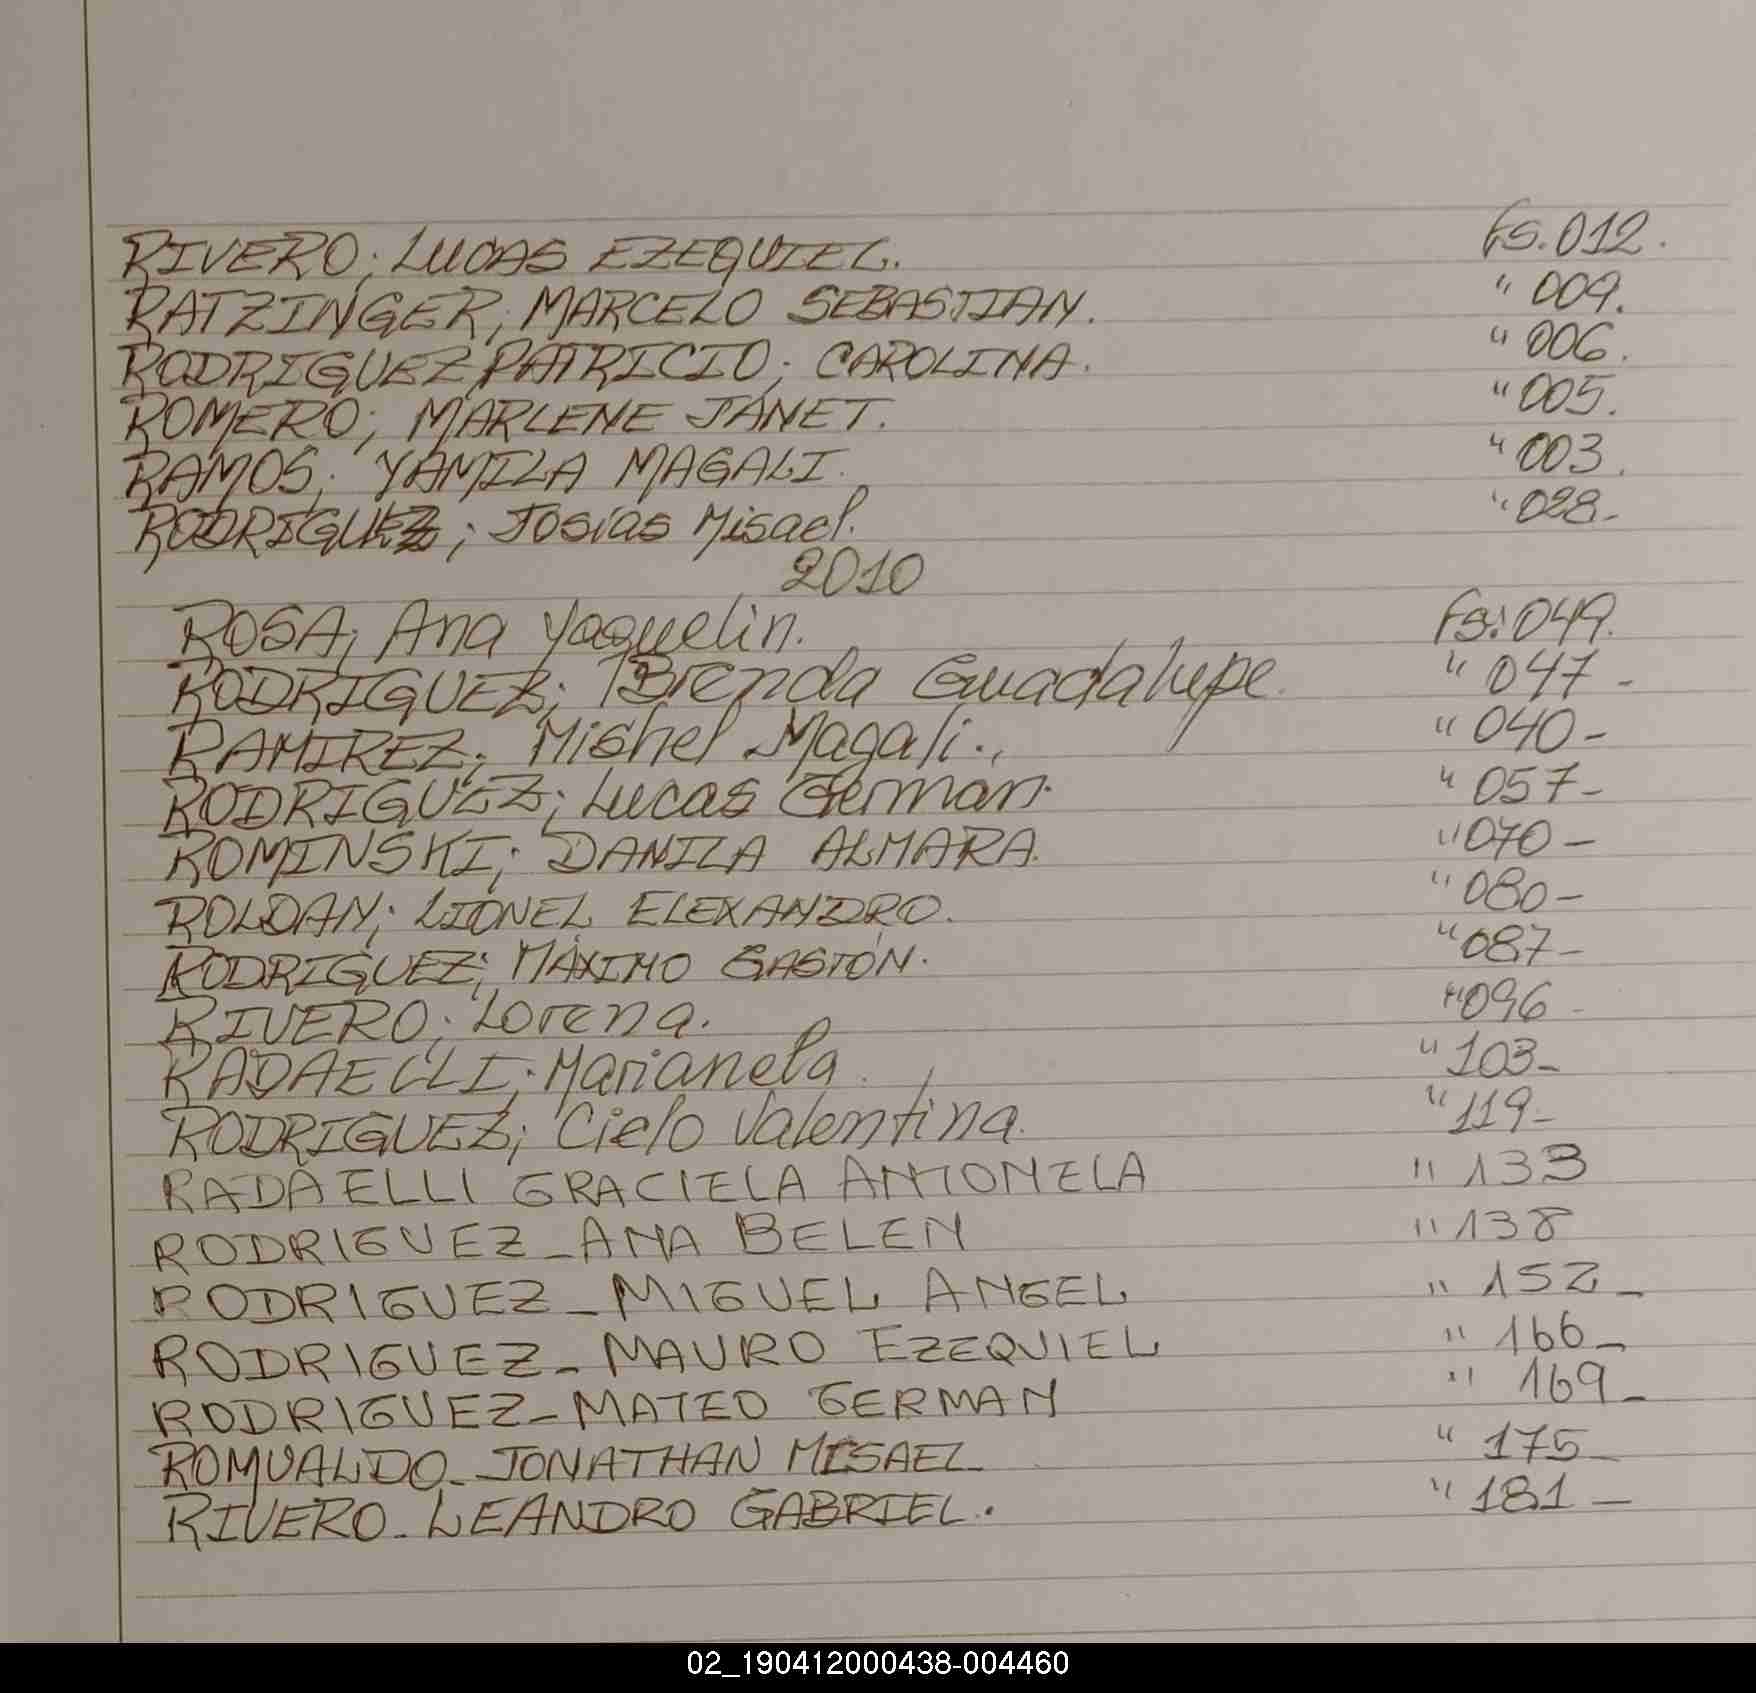 RIVERO; LUCAS EZEQUIEL. Fs. 012.
RATZINGER; MARCELO SEBASTIAN. " 009.
RODRIGUEZ PATRICIO; CAROLINA. " 006.
ROMERO; MARLENE JANET. " 005.
RAMOS; YAMILA MAGALI. " 003.
RODRIGUEZ; Josías Misael. " 028-
2010
ROSA; Ana Yaquelin. Fs: 049.
RODRIGUEZ; Brenda Guadalupe. " 047-
RAMIREZ; Mishel Magali. " 040-
RODRIGUEZ; Lucas German. " 057-
ROMINSKI; DANILA ALMARA. " 070-
ROLDAN; LIONEL ELEXANDRO. " 080-
RODRIGUEZ; MÁXIMO GASTÓN. " 087-
RIVERO; Lorena. " 096-
RADAELLI; Marianela. " 103-
RODRIGUEZ; Cielo Valentina. " 119-
RADAELLI GRACIELA ANTONELA " 133
RODRIGUEZ_ANA BELEN " 138
RODRIGUEZ_MIGUEL ANGEL " 152_
RODRIGUEZ_MAURO EZEQUIEL " 166_
RODRIGUEZ_MATEO GERMAN " 169_
ROMUALDO_JONATHAN MISAEL_ " 175_
RIVERO_LEANDRO GABRIEL. " 181_
02_190412000438-004460